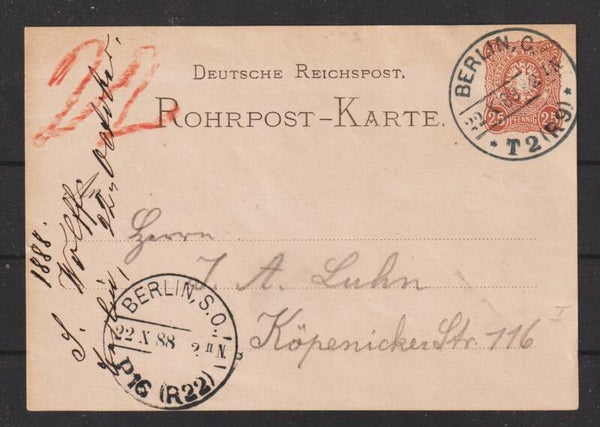 22
DEUTSCHE REICHSPOST.
ROHRPOST-KARTE.
BERLIN, C.
88
* T2 (R9) *
25 PFENNIG 25
Herrn
J. A. Luhn
Köpenicker Str 116 I
BERLIN, S.O.
22 X 88 2 II N
P16 (R22)
1888.
S. Wolff